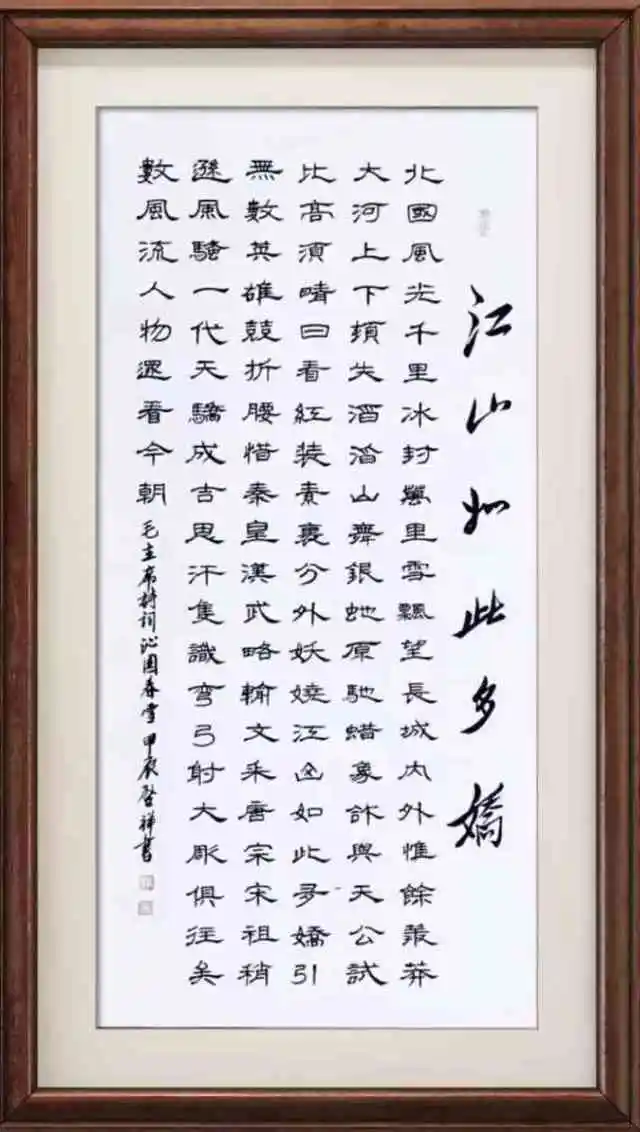 江山如此多嬌
北國風光千里冰封萬里雪飄望長城内外惟餘莽莽
大河上下頓失滔滔山舞銀虵原馳蜡象欲與天公試
比高須晴日看紅裝素裹分外妖嬈江山如此多嬌引
無數英雄競折腰惜秦皇漢武略輸文采唐宗宋祖稍
遜風騷一代天驕成吉思汗隻識彎弓射大彫俱往矣
數風流人物還看今朝 毛主席詩詞沁園春雪 甲辰啓祥書